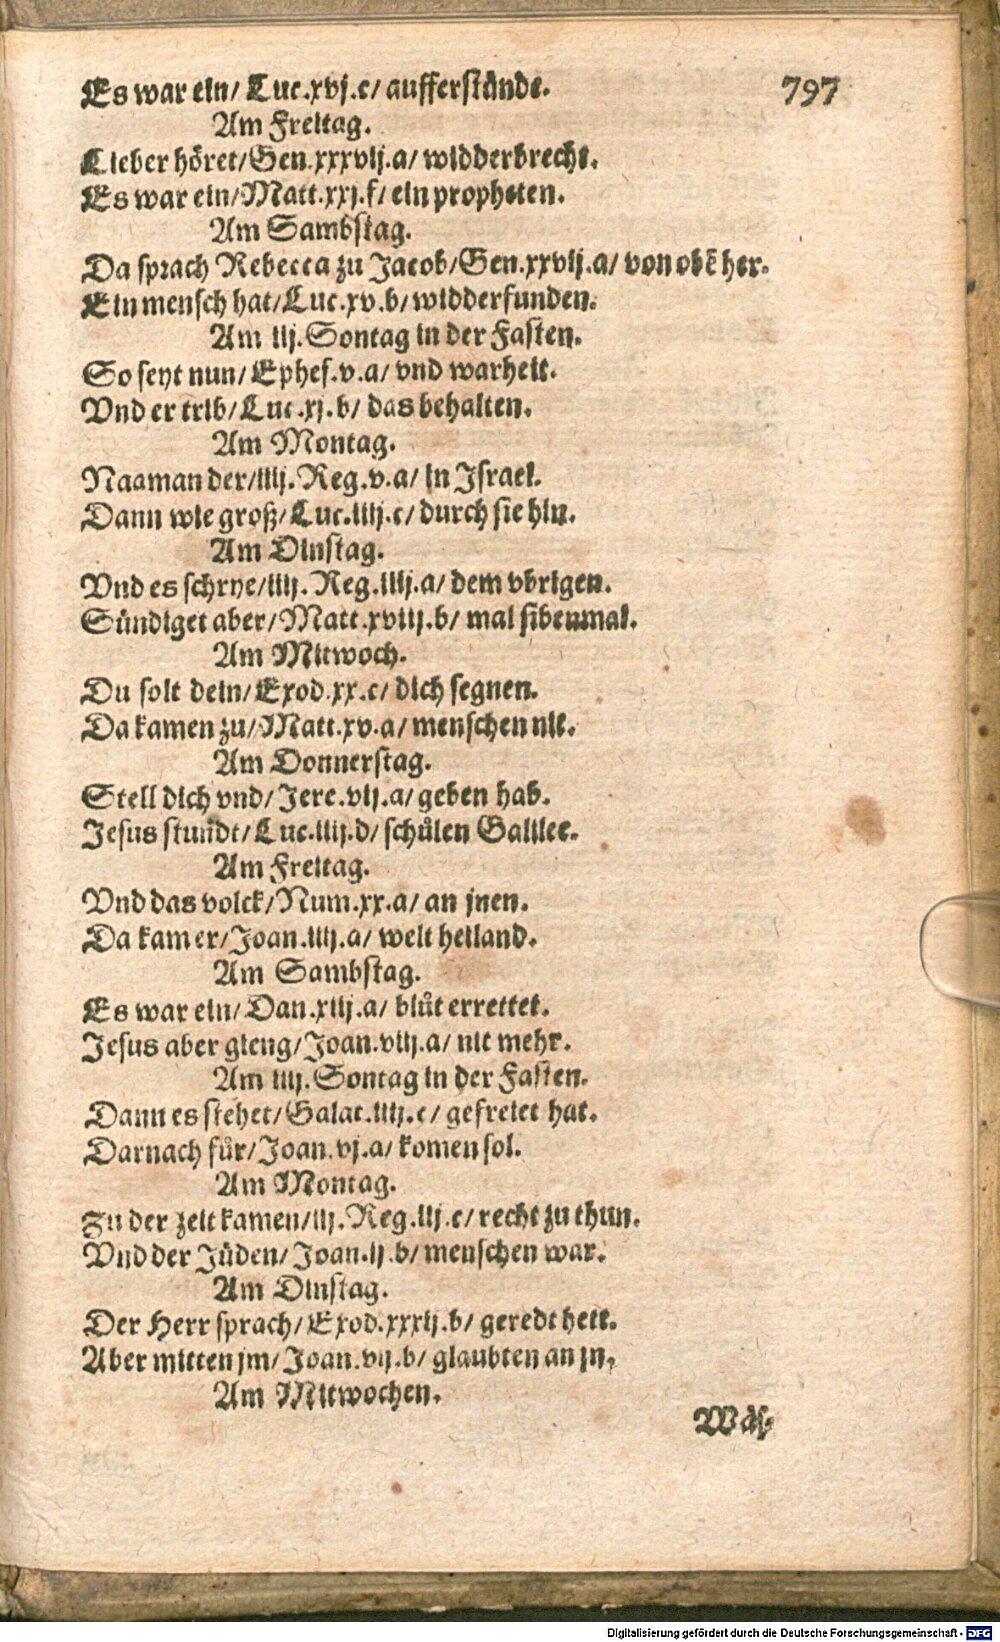 Es war ein/ Luc.xvj.c/ aufferstünde. 797
Am Freitag.
Lieber höret/Gen.xxxvij.a/ widderbrecht.
Es war ein/Matt.xxj.f/ ein propheten.
Am Sambstag.
Da sprach Rebecca zu Jacob/Gen.xxvij.a/ von obē her.
Ein mensch hat/Luc.xv.b/ widderfunden.
Am iij.Sontag in der Fasten.
So seyt nun/ Ephes.v.a/ vnd warheit.
Vnd er trib/Luc.xj.b/ das behalten.
Am Montag.
Naaman der/iiij.Reg.v.a/ in Israel.
Dann wie groß/Luc.iiij.c/ durch sie hin.
Am Dinstag.
Vnd es schrye/iiij.Reg.iiij.a/ dem vbrigen.
Sündiget aber/Matt.xviij.b/ mal sibenmal.
Am Mitwoch.
Du solt dein/Exod.xx.c/ dich segnen.
Da kamen zu/Matt.xv.a/ menschen nit.
Am Donnerstag.
Stell dich vnd/ Jere.vij.a/ geben hab.
Jesus stundt/Luc.iiij.d/ schůlen Galilee.
Am Freitag.
Vnd das volck/Num.xx.a/ an jnen.
Da kam er/Joan.iiij.a/ welt heiland.
Am Sambstag.
Es war ein/Dan.xiij.a/ blůt errettet.
Jesus aber gieng/Joan.viij.a/ nit mehr.
Am iiij.Sontag in der Fasten.
Dann es stehet/Galat.iiij.c/ gefreiet hat.
Darnach fůr/Joan.vj.a/ komen sol.
Am Montag.
Zu der zeit kamen/iij.Reg.iij.c/ recht zu thun.
Vnd der Jüden/Joan.ij.b/ menschen war.
Am Dinstag.
Der Herr sprach/Exod.xxxij.b/ geredt hett.
Aber mitten jm/Joan.vij.b/ glaubten an jn,
Am Mitwochen.
Wäs-
Digitalisierung gefördert durch die Deutsche Forschungsgemeinschaft - DFG